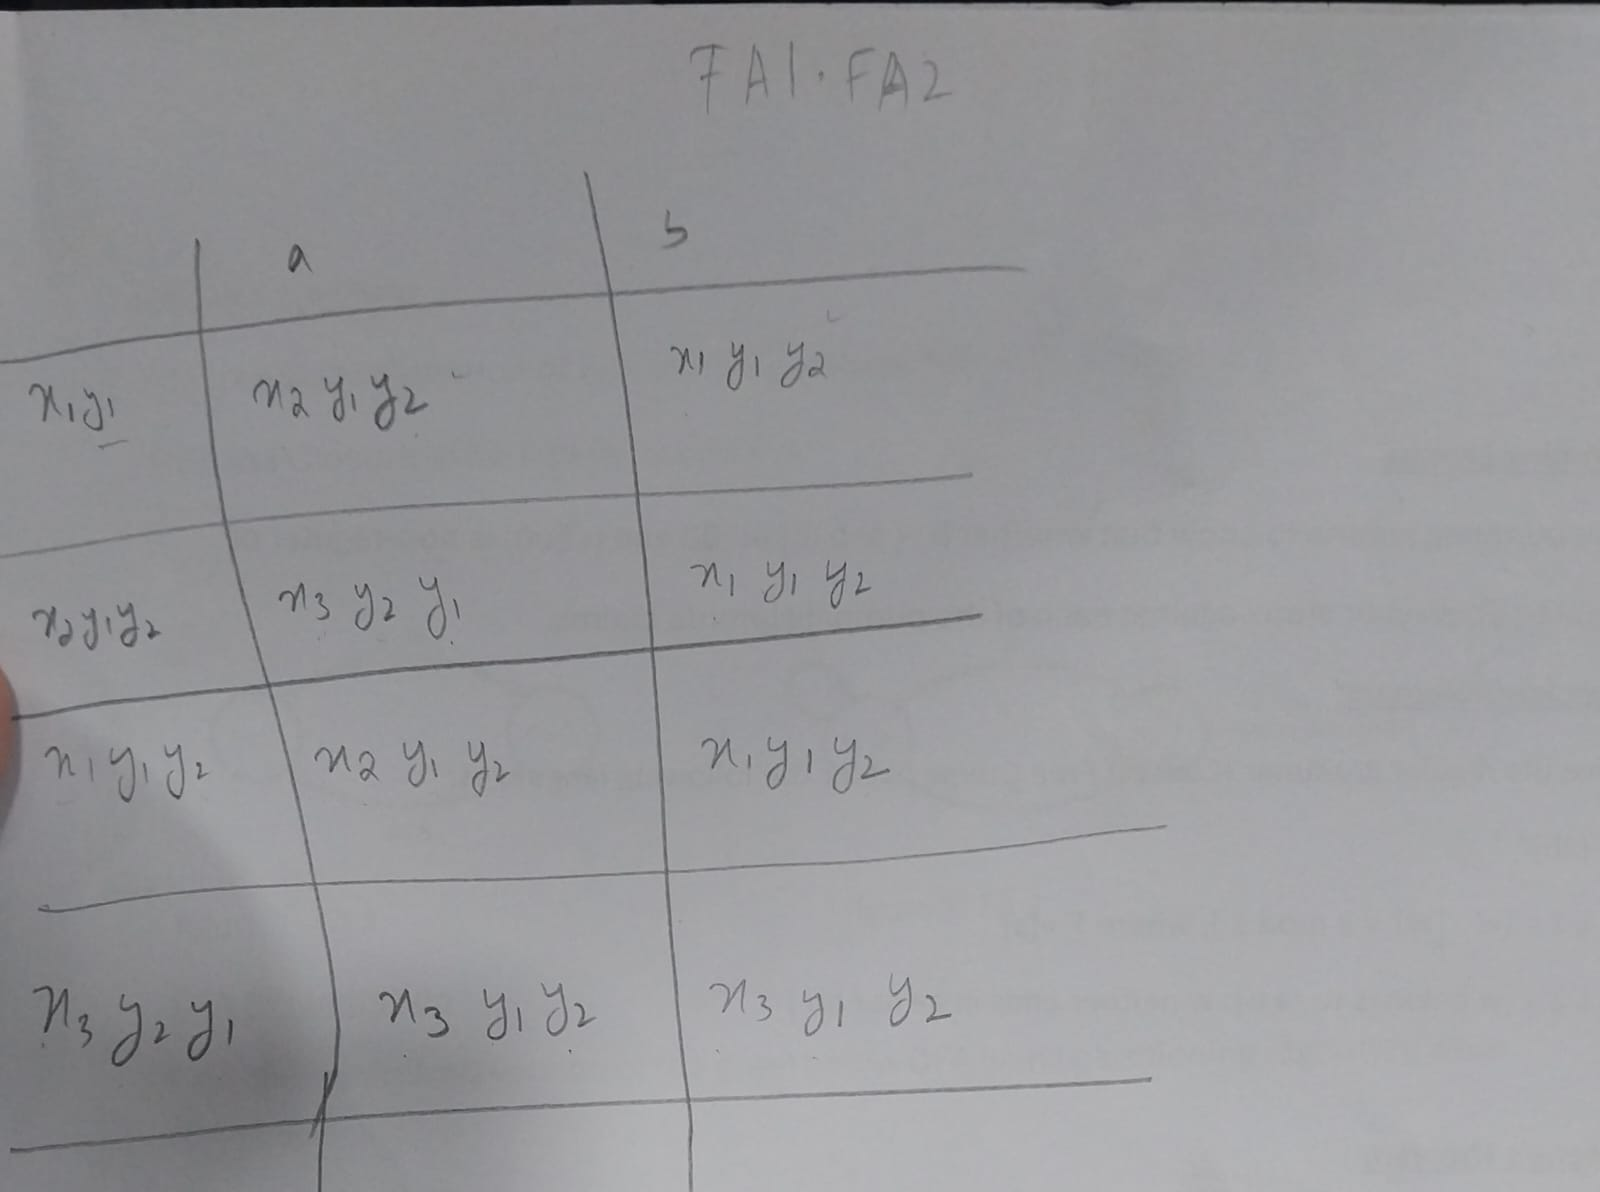 FA1.FA2
a b
x1y1 x2 y1 y2 x1 y1 y2
x2y1y2 x3 y2 y1 x1 y1 y2
x1 y1 y2 x2 y1 y2 x1 y1 y2
x3 y2 y1 x3 y1 y2 x3 y1 y2